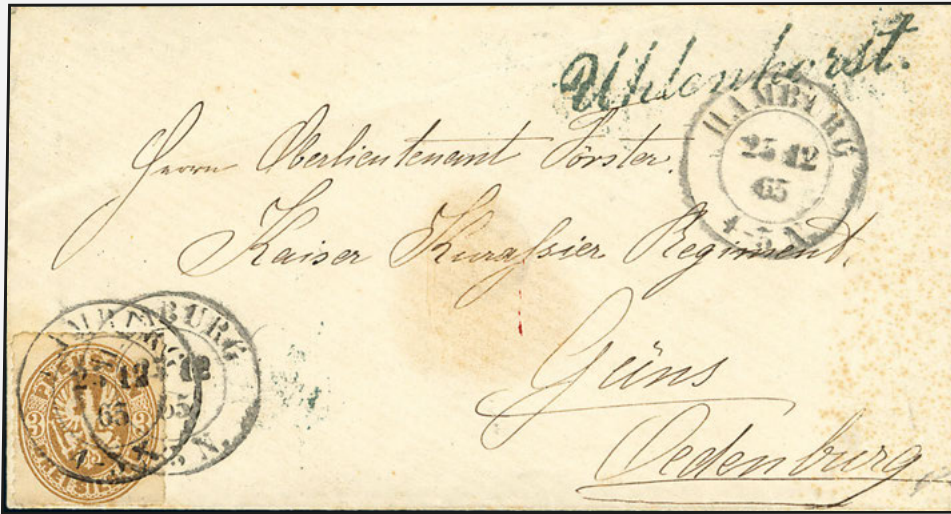 Uhlenhorst.
HAMBURG
25 12
65
4-5 N.
Herrn Oberlieutenant Förster.
Kaiser Kuraſsier Regiment.
Güns
Oedenburg
HAMBURG
25 12
65
HAMBURG
25 12
65
N.
3